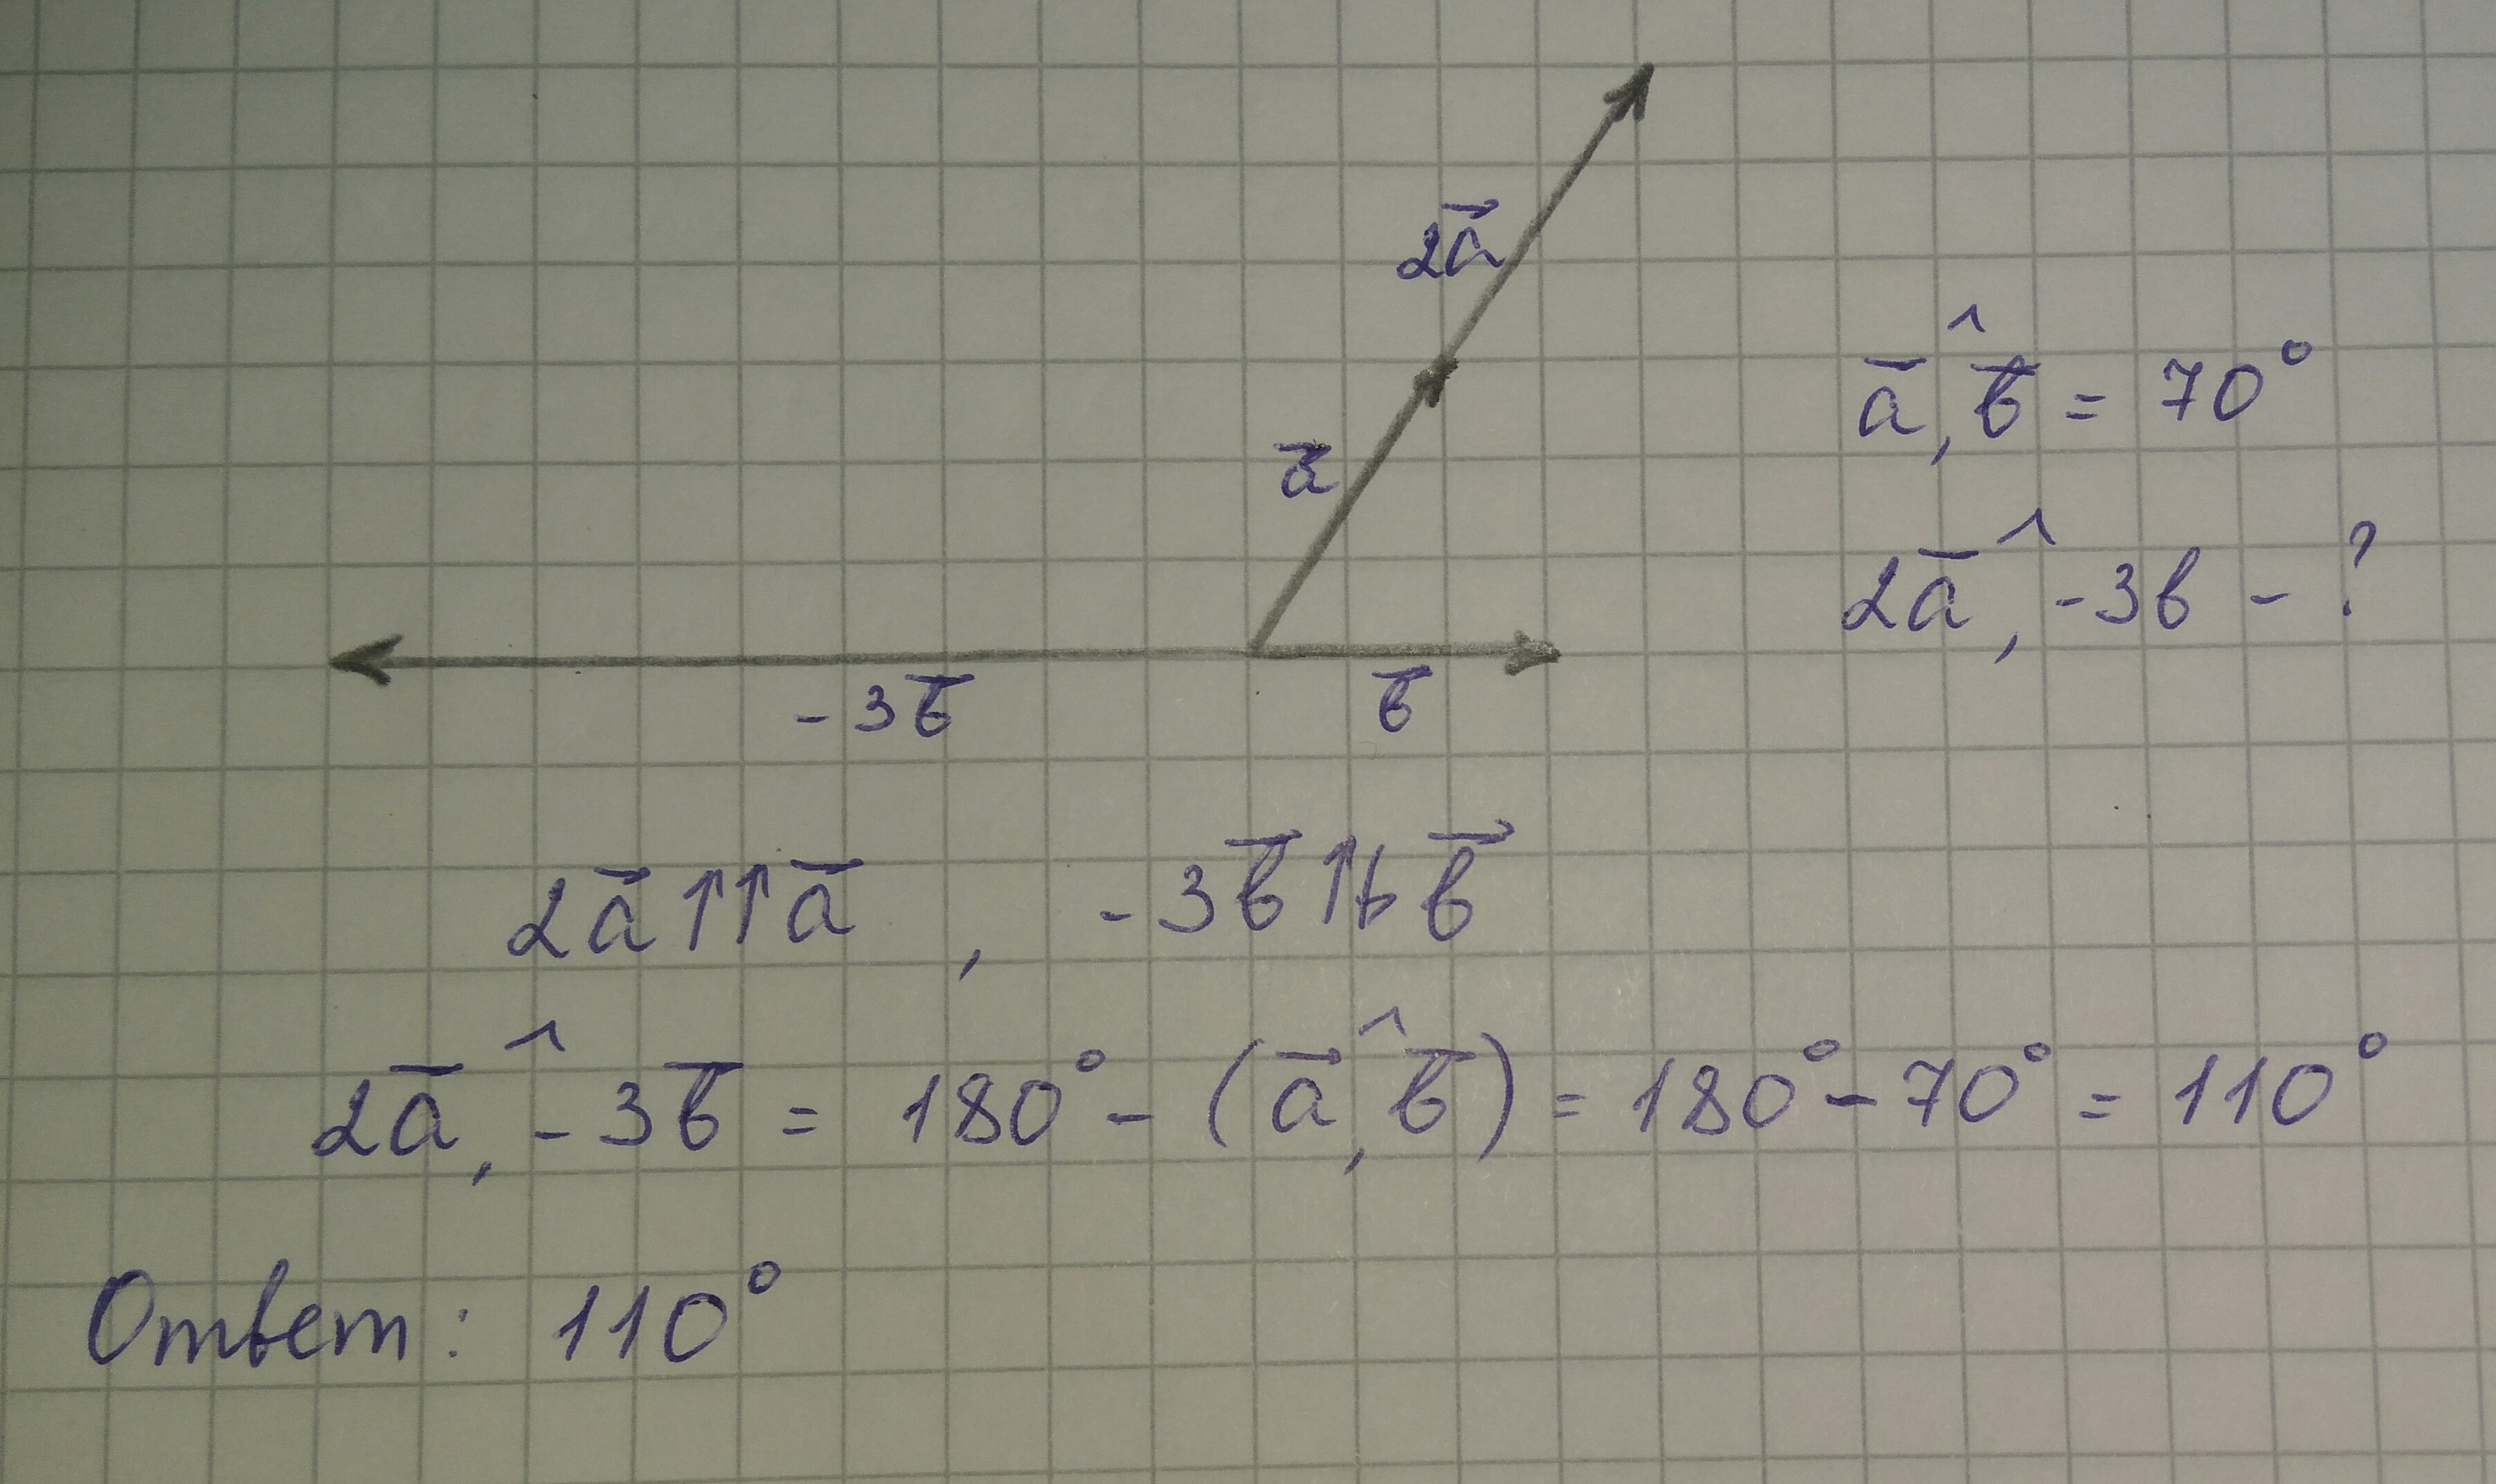 2a⃗
a̅,^b̅ = 70°
a⃗
2a̅,^ -3b - ?
-3b̅ b̅
2a⃗ ↑↑ a̅ , -3b⃗ ↑↓ b⃗
2a̅,^ -3b̅ = 180° - (a⃗,^b̅) = 180° - 70° = 110°
Ответ: 110°